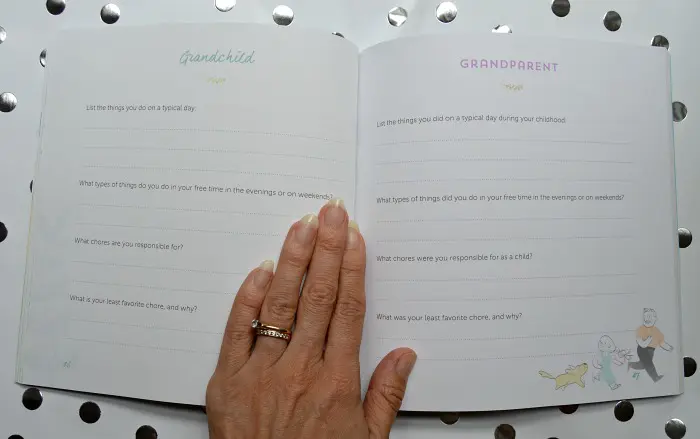 Grandchild
List the things you do on a typical day:
What types of things do you do in your free time in the evenings or on weekends?
What chores are you responsible for?
What is your least favorite chore, and why?
GRANDPARENT
List the things you did on a typical day during your childhood:
What types of things did you do in your free time in the evenings or on weekends?
What chores were you responsible for as a child?
What was your least favorite chore, and why?